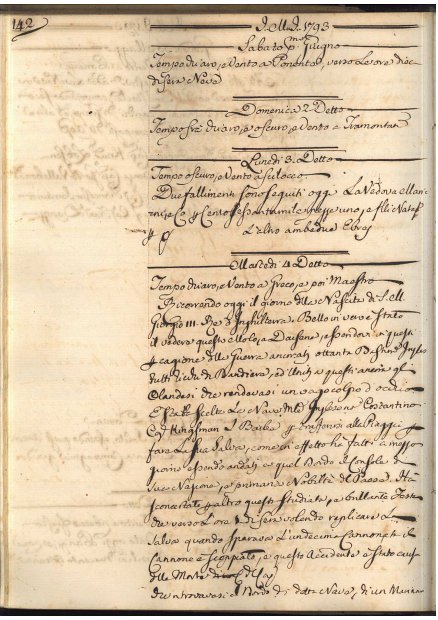 142
J. M. J. 1793
Sabato p.mo Giugno
Tempo chiaro, e Vento a Ponente, verso le ore dieci
di sera Neve
Domenica 2. Detto
Tempo frà chiaro, e oscuro, e Vento a Tramontana
Lunedì 3. Detto
Tempo oscuro, e Vento a Scilocco
Due fallimenti sono seguiti oggi La Vedova e
e Co p Cento sessantamila pezze uno, e
p L'altro ambedue Ebrej
Martedì 4 Detto
Tempo chiaro, e Vento a Greco, e poi Maestro
Ricorrendo oggi il giorno della Nascita di S. M.
Giorgio III. Rè d'Inghilterra, Bello in vero è stato
il vedere questo Molo, a Darsene, essendovi in questi
p cagione della Guerra ancorati ottanta Bastim.ti Inglesi
tutti ricchi di Bandiera, ed Uniti a questi ancor gl'
Olandesi che rendevasi un vago colpo d'occhio
È stata scelta la Nave M.td Inglesse Costantino
Kingsman p portarsi alla Piaggia
fare la sua Salva, come in effetto ha fatto a mezzo
giorno essendo andato a quel Bordo il Console di
sua Nazione, e primaria Nobiltà del Paese. Ha
sconcertato p altro questa studiata, e brillante Festa
che verso l'ora 1. di sera volendo replicare La
Salva quando sparava l'undecimo Cannone il
Cannone è scoppiato, e questo Accidente è stato causa
della Morte
che trovavasi al Bordo di detta Nave, di un Marinaro